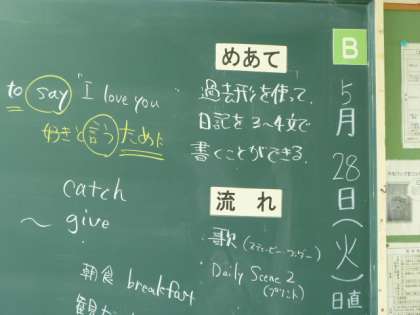 B
5月28日(火)
日直
めあて
過去形を使って、
日記を3~4文で
書くことができる。
流れ
歌(スティービー・ワンダー)
Daily Scene 2
(プリント)
to say "I love you"
好きと言うために
catch
~ give
朝食 breakfast
観